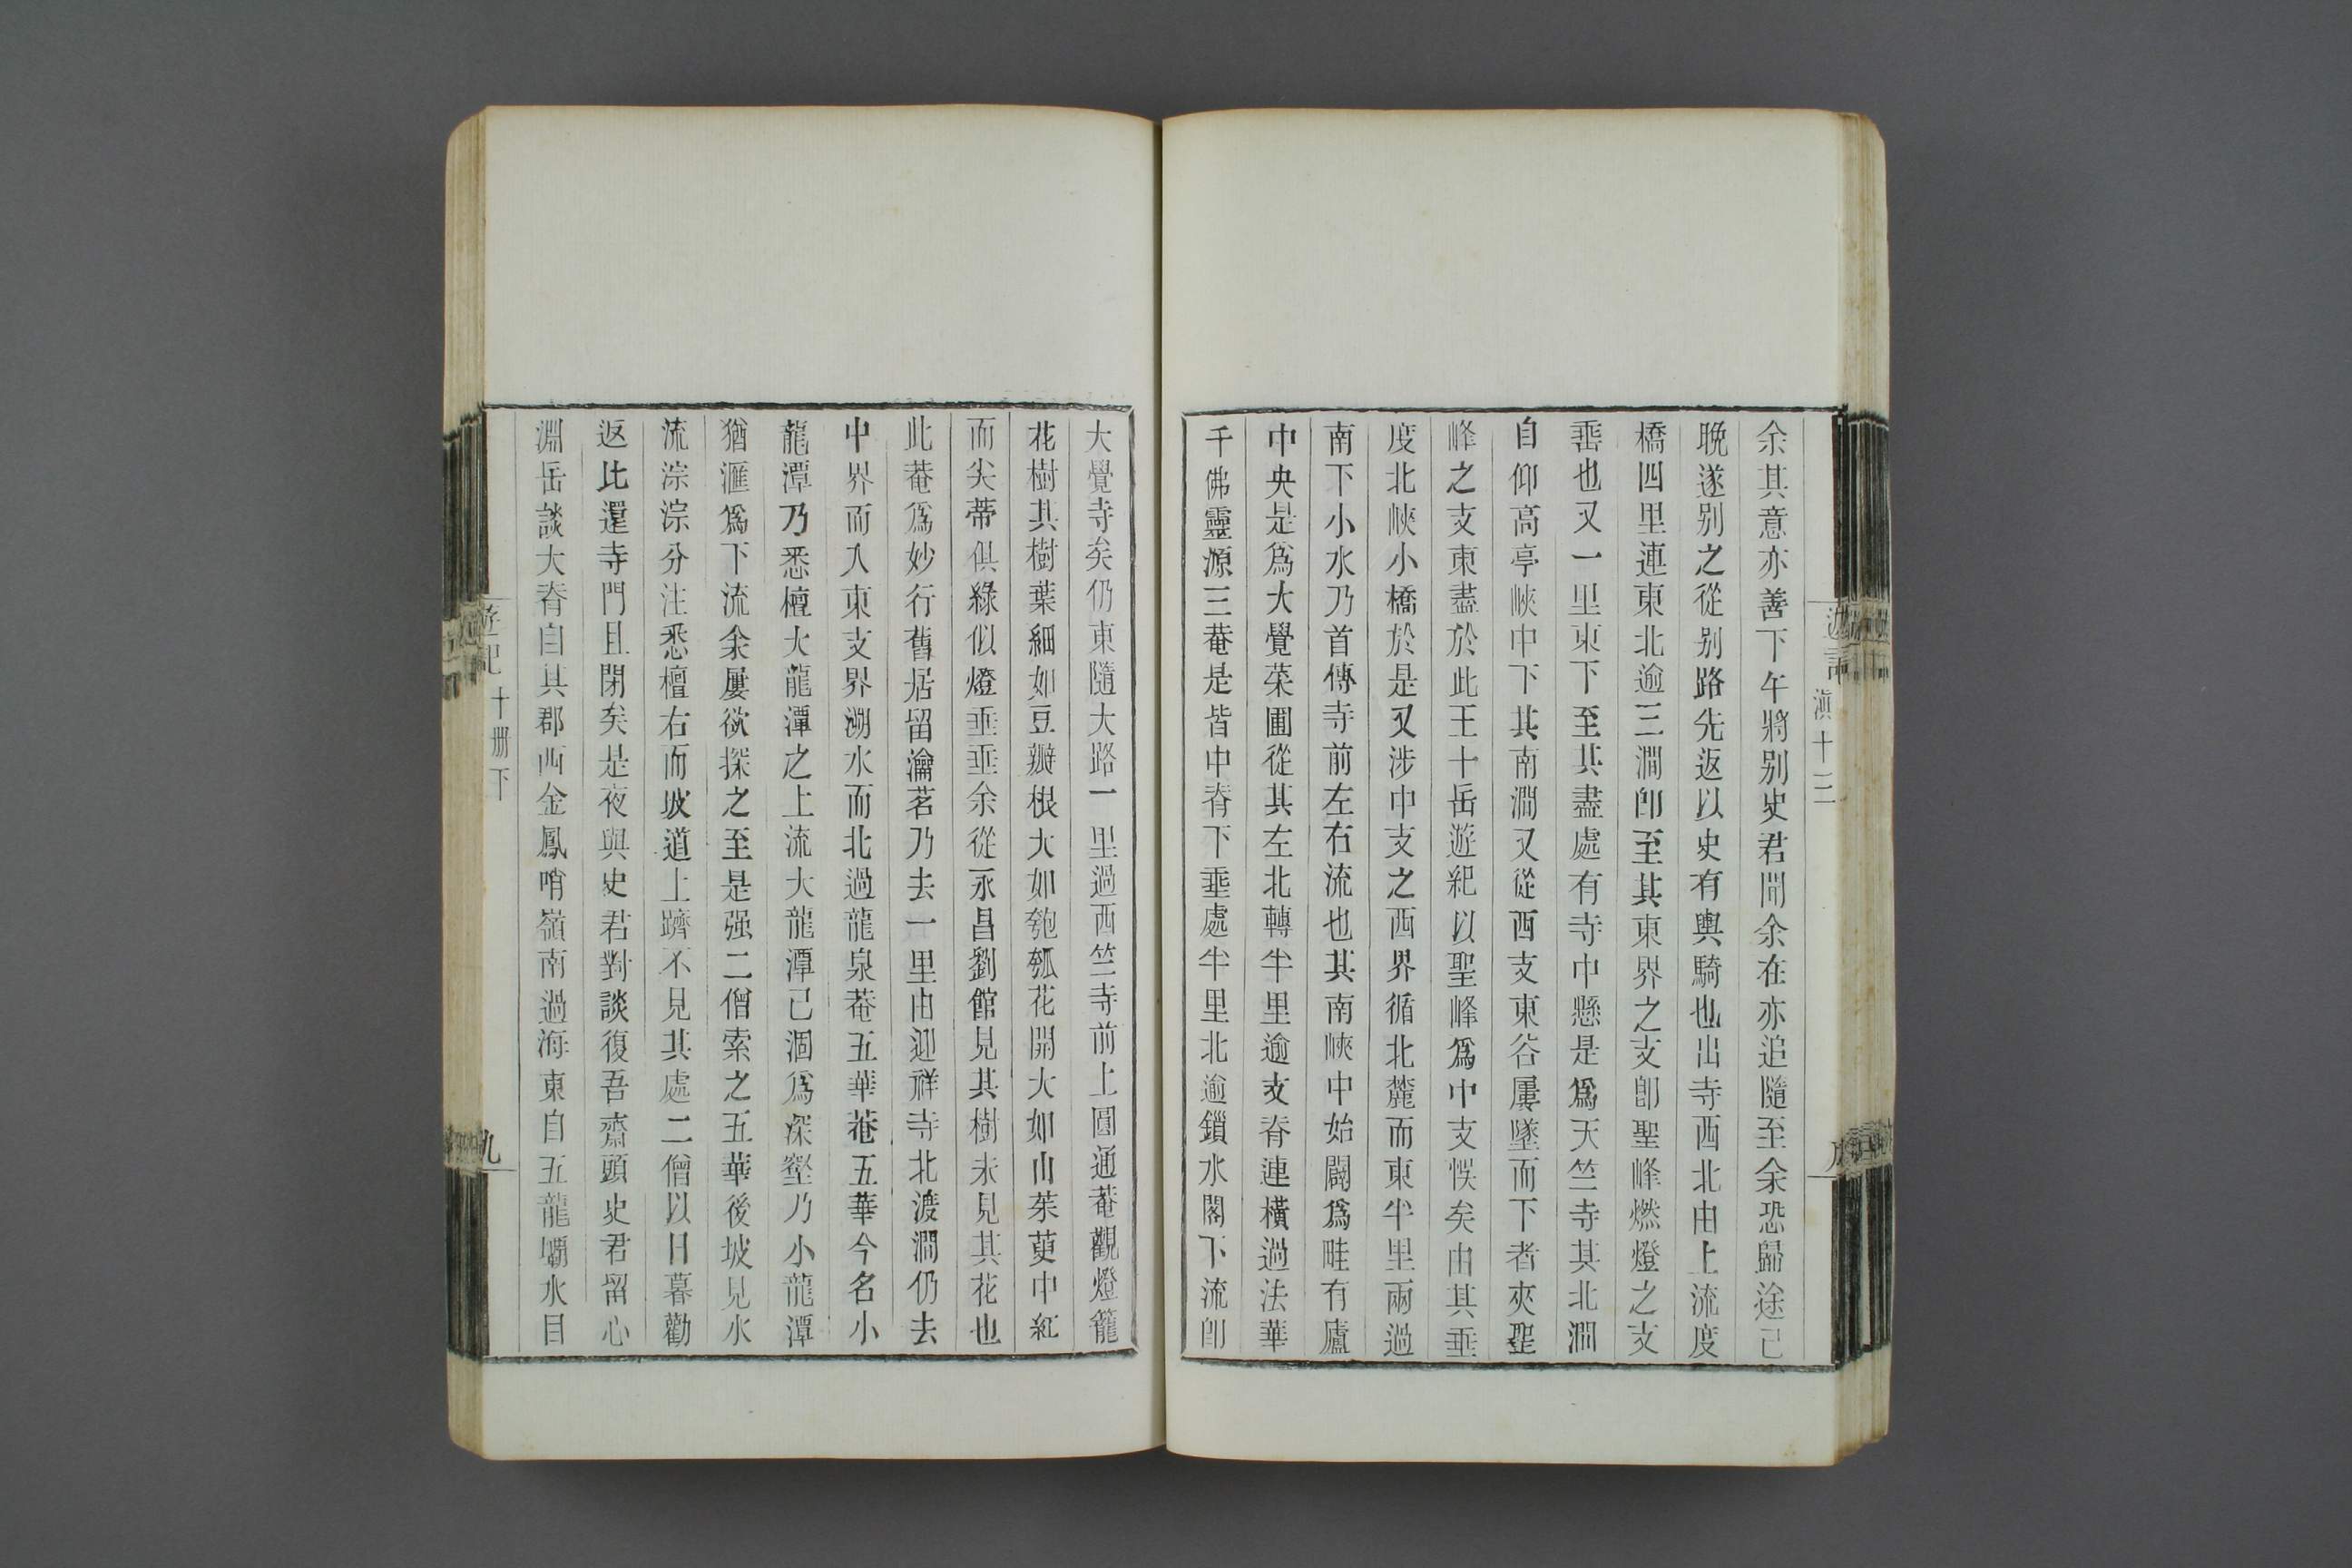 遊記 滇十三
余其意亦善下午將別史君聞余在亦追隨至余恐歸途已
晚遂别之從别路先返以史有輿騎也出寺西北由上流度
橋四里連東北逾三澗卽至其東界之支卽聖峰燃燈之支
埀也又一里東下至其盡處有寺中懸是爲天竺寺其北澗
自仰高亭峽中下其南澗又從西支東谷屢墜而下者夾聖
峰之支東盡於此王十岳遊紀以聖峰爲中支悞矣由其垂
度北峽小橋於是又涉中支之西界循北麓而東半里兩過
南下小水乃首傳寺前左右流也其南峽中始闢爲畦有廬
中央是爲大覺菜圃從其左北轉半里逾支脊連橫過法華
千佛靈源三菴是皆中脊下埀處半里北逾鎖水閣下流卽
大覺寺矣仍東隨大路一里過西竺寺前上圓通菴觀燈籠
花樹其樹葉細如豆瓣根大如匏瓠花開大如山茱萸中紅
而尖蒂俱綠似燈垂垂余從永昌劉館見其樹未見其花也
此菴爲妙行舊居留瀹茗乃去一里由迎祥寺北渡澗仍去
中界而入東支界溯水而北過龍泉菴五華菴五華今名小
龍潭乃悉檀大龍潭之上流大龍潭已涸爲深壑乃小龍潭
猶滙爲下流余屢欲探之至是强二僧索之五華後坡見水
流淙淙分注悉檀右而坡道上躋不見其處二僧以日暮勸
返比還寺門且閉矣是夜與史君對談復吾齋頭史君留心
淵岳談大脊自其郡西金鳳哨嶺南過海東自五龍壩水目
遊記 十册下 九